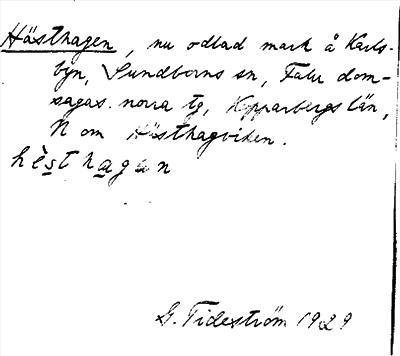 Hästhagen, nu odlad mark å Karls-
byn, Sundborns sn, Falu dom-
sagas norra tg, Kopparbergs län,
N om Hästhagviken.
hèsthagan
G. Tideström 1929